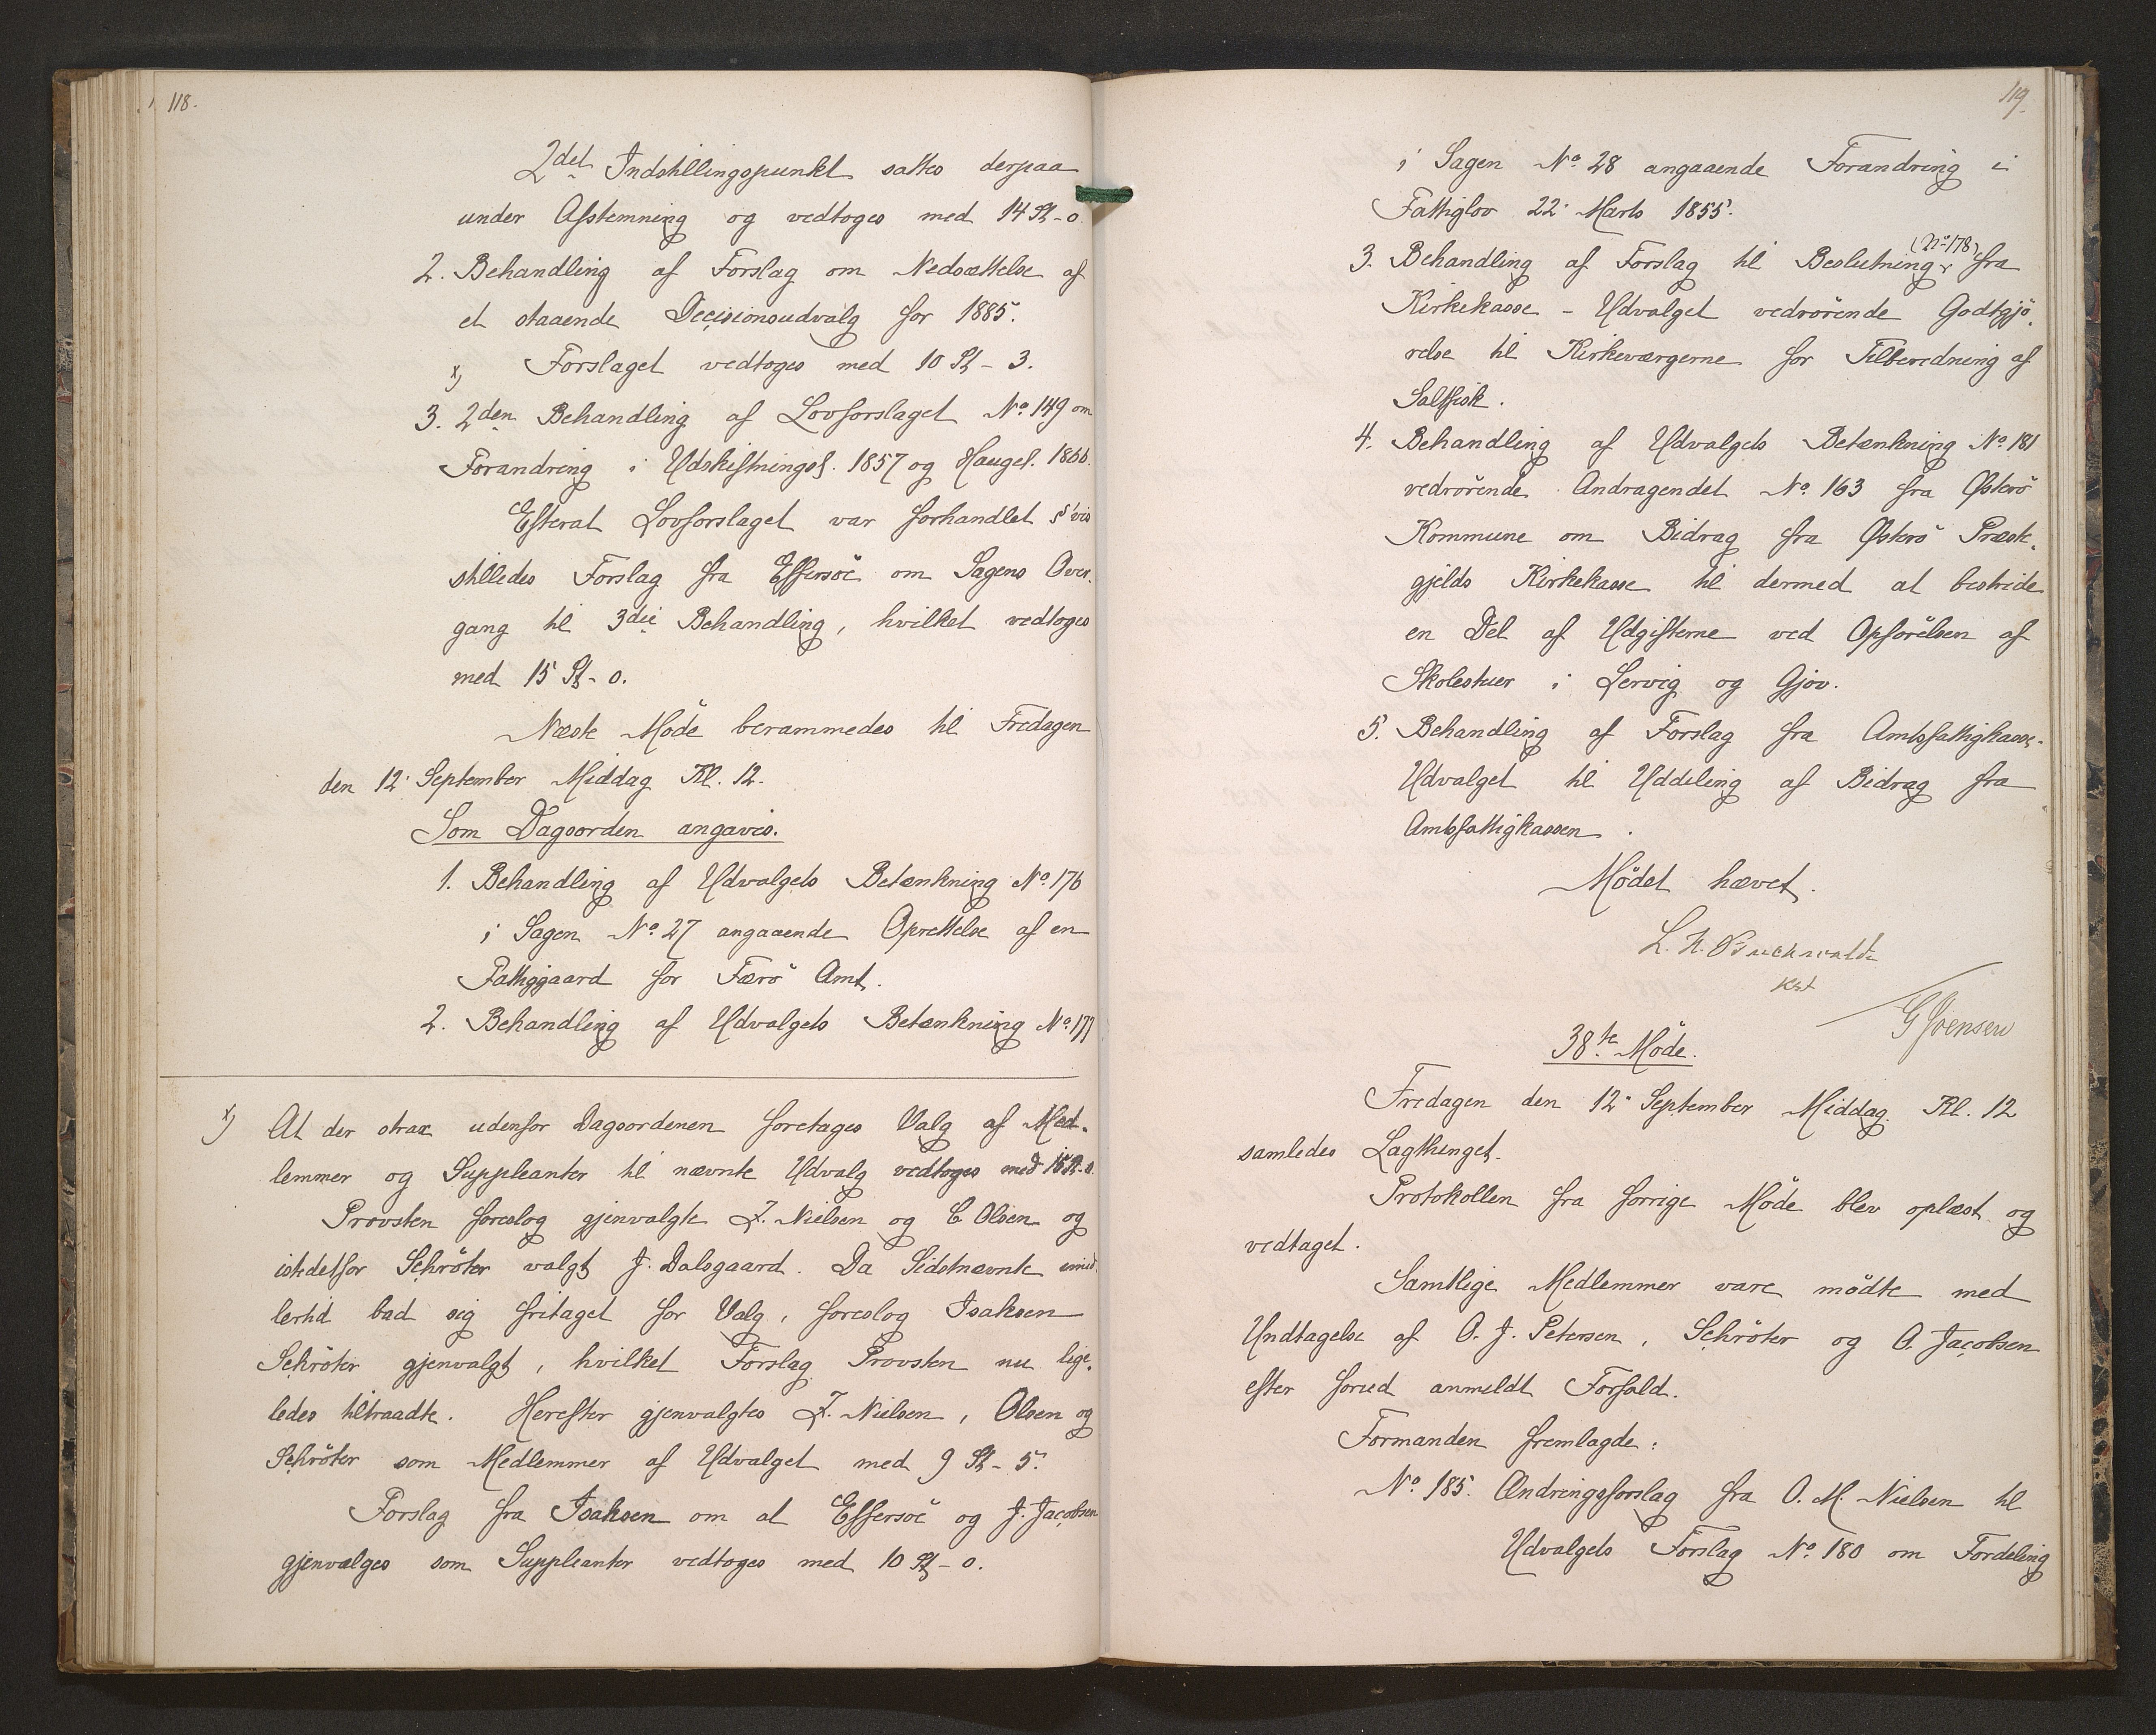 118.
2det Indstillingspunkt sattes derpaa
under Afstemning og vedtoges med 14 St-0.
2. Behandling af Forslag om Nedsættelse af
et staaende Decisionsudvalg for 1885.
Forslaget vedtoges med 10 St-3.
x)
3. 2den Behandling af Lovforslaget No. 149 om
Forandring i Udskiftningsl. 1857 og Haugel. 1866.
Efterat Lovforslaget var forhandlet §vis
stilledes Forslag fra Effersöe om Sagens Over-
gang til 3die Behandling, hvilket vedtoges
med 15 St-0.
Næste Möde berammedes til Fredagen
den 12. September Middag Kl. 12.
Som Dagsorden angaves.
1. Behandling af Udvalgets Betænkning No. 176
i Sagen No. 27 angaaende Oprettelse af en
Fattiggaard for Færö Amt.
2. Behandling af Udvalgets Betænkning No. 177
x) At der strax udenfor Dagsordenen foretages Valg af Med-
lemmer og Suppleanter til nævnte Udvalg vedtoges med 15 St-0.
Provsten foreslog gjenvalgte Z. Nielsen og C. Olsen og
istedetfor Schröter valgt J. Dalsgaard. Da Sidstnævnte imid-
lertid bad sig fritaget for Valg, foreslog Isaksen
Schröter gjenvalgt, hvilket Forslag Provsten nu lige-
ledes tiltraadte. Herefter gjenvalgtes Z. Nielsen, Olsen og
Schröter som Medlemmer af Udvalget med 9 St-5.
Forslag fra Isaksen om at Effersöe og J. Jacobsen
gjenvælges som Suppleanter vedtoges med 10 St-0.
119.
i Sagen No. 28 angaaende Forandring i
Fattiglov 22. Marts 1855.
(No. 178)
3. Behandling af Forslag til Beslutning fra
Kirkekasse-Udvalget vedrörende Godtgjö-
relse til Kirkeværgerne for Tilberedning af
Saltfisk.
4. Behandling af Udvalgets Betænkning No. 181
vedrörende Andragendet No. 163 fra Østerö
Kommune om Bidrag fra Østerö Præste-
gjelds Kirkekasse til dermed at bestride
en Del af Udgifterne ved Opförelsen af
Skolestuer i Lervig og Gjov.
5. Behandling af Forslag fra Amtsfattigkasse-
Udvalget til Uddeling af Bidrag fra
Amtsfattigkassen.
Mödet hævet.
L. H. Buchwaldt
Kst
G Joensen
38te Möde.
Fredagen den 12. September Middag Kl. 12
samledes Lagthinget.
Protokollen fra forrige Möde blev oplæst og
vedtaget.
Samtlige Medlemmer vare mödte med
Undtagelse af O. J. Petersen, Schröter og O. Jacobsen
efter forud anmeldt Forfald.
Formanden fremlagde:
No. 185. Ændringsforslag fra O. M. Nielsen til
Udvalgets Forslag No. 180 om Fordeling